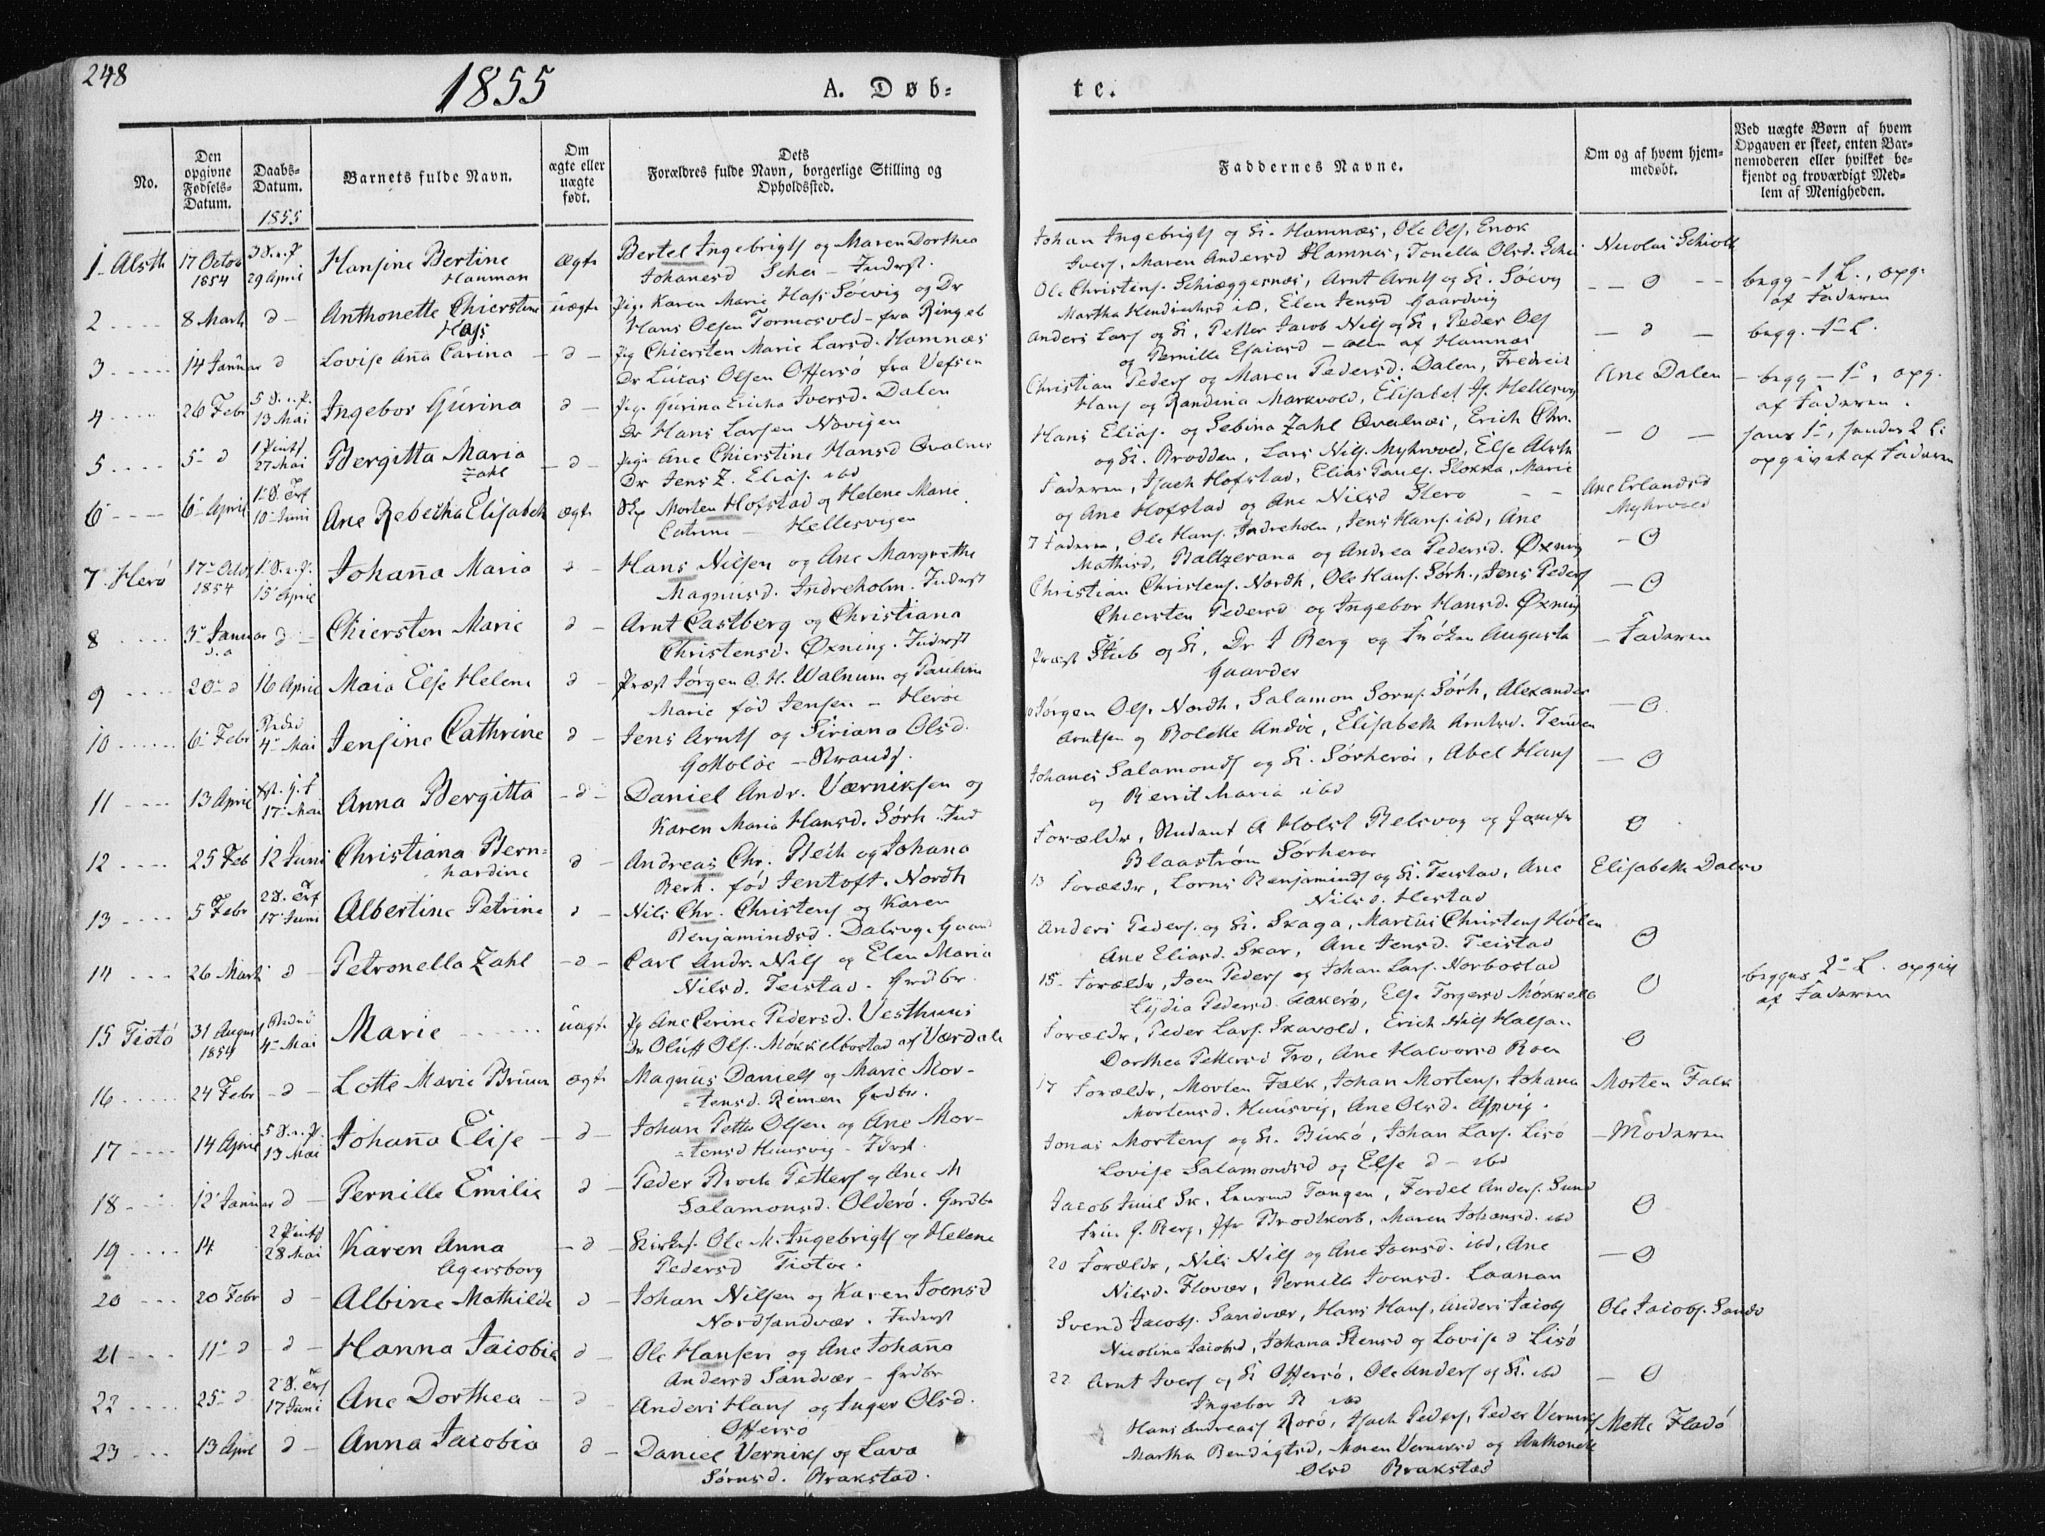 248
1855
A. Døb=
te.
No.
Den opgivne Fødsels-Datum.
Daabs-Datum.
1855
Barnets fulde Navn.
Om ægte eller uægte født.
Dets Forældres fulde Navn, borgerlige Stilling og Opholdsted.
Faddernes Navne.
Om og af hvem hjem-medøbt.
Ved uægte Børn af hvem Opgaven er skeet, enten Bar-nemoderen eller hvilket be-kjendt og troværdigt Med-lem af Menigheden.
1 Alsth 17 Octob 1854 29 April Hansine Bertine Hanman ægte
Bertel Ingebrigts og Maren Dorthea
Johanesd Schei - Inderst.
Johan Ingebrigts og K. Hamnæs, Ole Ols. Enok
Ivers, Maren Andersd Hamnes, Tonella Olsd. Schei
2 8 Marts d Anthonette Chierstine Hass uægte
Pige Karen Marie Hass Söevig og Dr
Hans Olsen Tormosvold - fra Ringeb
Ole Christens. Schiæggesnæs, Arnt Arnts og K. Söevg
Martha Hendrichsd ibd, Elen Jensd Gaardvig
begg - 1 L., opg. af Faderen
3 14 Januar d Lovise Aña Carina d
Pig Chiersten Marie Larsd. Hamnæs
Dr Lucas Olsen Offersö fra Vefsen
Anders Lars og K, Petter Jacob Nils og K, Peder Ols
og Pernille Esaiasd - alle af Hamnæs
begg. 1 L.
4 26 Febr 13 Mai Ingebor Gurina d
Pige Gurina Ericha Iversd. Dalen
Dr Hans Larsen Novigen
Christian Peders og Maren Pedersd. Dalen, Fredrich
Hans og Randina Markvold, Elisabet H. Hellesvig
Ane Dalen
begg - 1, opg. af Faderen.
5 5 d 27 Mai Bergitta Maria Zahl d
Pige Ane Chierstine Hansd Qvalnes
Dr Jens Z. Elias. ibd
Hans Elias. og Sebina Zahl Qvalnæs, Erich Chr.
og K. Brodden, Lars Nils. Myhrvold, Else Alsth
opgivet af Faderen
6 6 April 10 Juni Ane Rebecha Elisabeth ægte
Morten Hofstad og Helene Marie
Catrine - Hellesvigen
Faderen, Isach Hofstad, Elias Pauls. Slokka, Marie
og Ane Hofstad og Ane Nilsd Stero
Ane Erlandsd Myhrvold
7 Herö 17 Octbr 1854 15 April Johaña Maria d
Hans Nilsen og Ane Margrethe
Magnusd. Indreholm. Inderst
7 Faderen, Ole Hans. Indreholm, Jens Hans. ibd, Ane
Mathisd, Baltzerana og Andrea Pedersd. Øxning
8 3 Januar d Chiersten Marie d
Arnt Castberg og Christiana
Christensd. Øxning. Inderst
Christian Christens. Nordh, Ole Hans. Sörh., Jens Peders
Chiersten Pedersd og Ingebor Hansd. Øxning
9 20 d 16 April Maia Else Helene d
Præst Jörgen O. H. Walnum og Pauline
Marie fød Jensen - Heröe
Præst Stub og K, Dr I Berg og Fröken Augusta
Gaarder
Faderen
10 6 Febr 4 Mai Jensine Cathrine d
Jens Arnts og Siriana Olsd.
Jörgen Ols. Nordh, Salamon Sörns. Sörh, Alexander
Arntsen og Bolette Andöe, Elisabeth Arntsd. Tenden
11 13 April 17 Mai Anna Bergitta d
Daniel Andr. Værniksen og
Karen Maria Hansd. Sörh. Ind
Johanes Salamonds og K. Sörheröi, Abel Hans
og Berrit Maria ibd
12 25 Feb 12 Juni Christiana Bern=hardine d
Andreas Chr. Bech og Johana
Berh. fød Jentoft. Nordh
Forældr, Student A Holst Belsvog og Jomfr
Blaaström Sörheröe
13 5 Febr 17 Juni Albertine Petrine d
Nils Chr. Christens og Karen
Benjaminsd. Dalsvg. Gaard
13 Forældr, Lorns Benjamins og K. Teistad, Ane
Nilsd. Hestad
Elisabeth Dalsv
14 26 Marts d Petronella Zahl d
Carl Andr. Nils og Elen Maria
Nilsd. Teistad. Grdbr.
Anders Peders. og K. Skaga, Marcus Christens Holen
Ane Eliasd. Skar, Ane Jensd. Teistad
15 Tiotö 31 August 1854 4 Mai Marie uægte
Pg Ane Perine Pedersd. Vesthuus
Dr Oluff Ols. Mökkelbostad af Værdale
15 Forældr, Joen Peders og Johan Lars. Norbostad
Lydia Pedersd. Aakerö, Else Torgersd Mökkelb
begges 2 L. opgive af Faderen
16 24 Febr d Lotte Marie Bruun ægte
Magnus Daniels og Marie Mor-
=tensd. Remen Grdbr.
Forældr, Peder Lars. Skavold, Erich Nils Halsan
Dorthea Pettersd Tro, Ane Halvorsd Roen
17 14 April 13 Mai Johaña Elise d
Johan Petter Olsen og Ane Mor-
=tensd Huusvig - Inderst
17 Forældr, Morten Falk, Johan Mortens, Johana
Mortensd. Huusvig, Ane Olsd. Aspvig.
Morten Falk
18 12 Januar d Pernille Emilie d
Peder Brock Petters og Ane M
Salamonsd. Olderö. Grdbr
Jonas Mortens og K. Buckö, Johan Lars. Lisö
Lovise Salamonsd og Else d - ibd
Moderen
19 14 28 Mai Karen Anna Agersborg d
Kirkes. Ole M. Ingebrigts og Helene
Pedersd Tiotöe.
Jacob Juul Sk, Laurend Tangen, Fordel Anders. Sund
Fru J. Berg, Jfr Brodtkorb, Maren Johansd. ibd
20 20 Febr d Albine Mathilde d
Johan Nilsen og Karen Joensd
Nordsandvær. Inderst
20 Forældr, Nils Nils og Ane Joensd. ibd, Ane
Nilsd. Flovær, Pernille Joensd. Laanan
21 11 d d Hanna Jacobia d
Ole Hansen og Ane Johaña
Andersd Sandvær - Grdbr
Svend Jacobs. Sandvær, Hans Hans, Anders Jacobs
Nicolina Jacobsd, Johana Stensd og Lovise d Lisö
Ole Jacobs. Sandv
22 25 d 17 Juni Ane Dorthea d
Anders Hans og Inger Olsd.
Offersö
22 Arnt Ivers og K Offersö, Ole Anders og K. ibd
Ingebor B ibd
23 13 April d Anna Jacobia d
Daniel Verniks og Lava
Sörensd. Brakstad.
Hans Andreas Rosö, Isach Peders, Peder Verniks
Martha Bendigtsd, Maren Verniksd og Anthonette
Olsd Brakstad
Mette Fladö